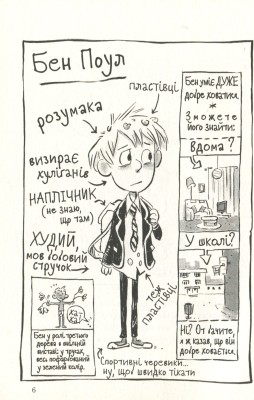 Бен Поул
пластівці
розумака
визирає
хуліганів
НАПЛІЧНИК
(не знаю,
що там)
ХУДИЙ,
мов бобовий
стручок
теж
пластівці
Спортивні черевики...
ну, щоб швидко тікати
Бен у ролі третього
дерева в шкільній
виставі: у трусах,
весь пофарбований
у зелений колір.
Бен уміє ДУЖЕ
добре ховатися.
Ж
Зможете
його знайти:
Вдома?
У школі?
Ні? От бачите,
я ж казав, що він
добре ховається.
6